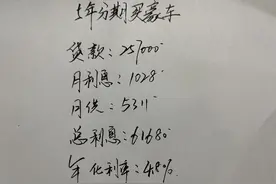 5年分期买豪车
贷款：257000
月利息：1028
月供：5311
总利息：61680
年化利率：4.8%